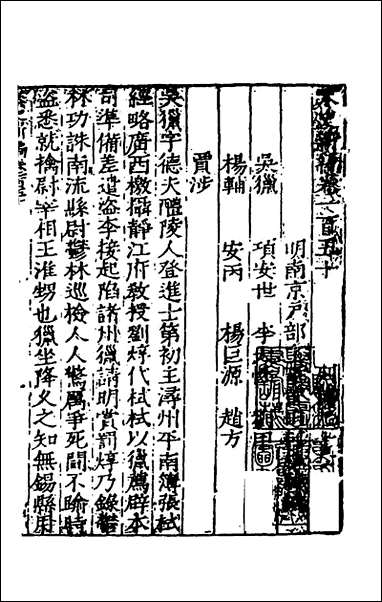 宋史新編卷一百五十
明南京戶部
吳獵 項安世 李
楊輔 安丙 楊巨源 趙方
賈涉
吳獵字德夫醴陵人登進士第初主潯州平南簿張栻
經略廣西檄攝靜江府敎授劉焞代栻栻以獵薦辟本
司準備差遣盜李接起陷諸州獵請明賞罰焞乃錄鬱
林功誅南流縣尉鬱林巡檢人人驚厲爭死間不踰時
盜悉就擒尉宰相王淮甥也獵坐降久之知無錫縣用